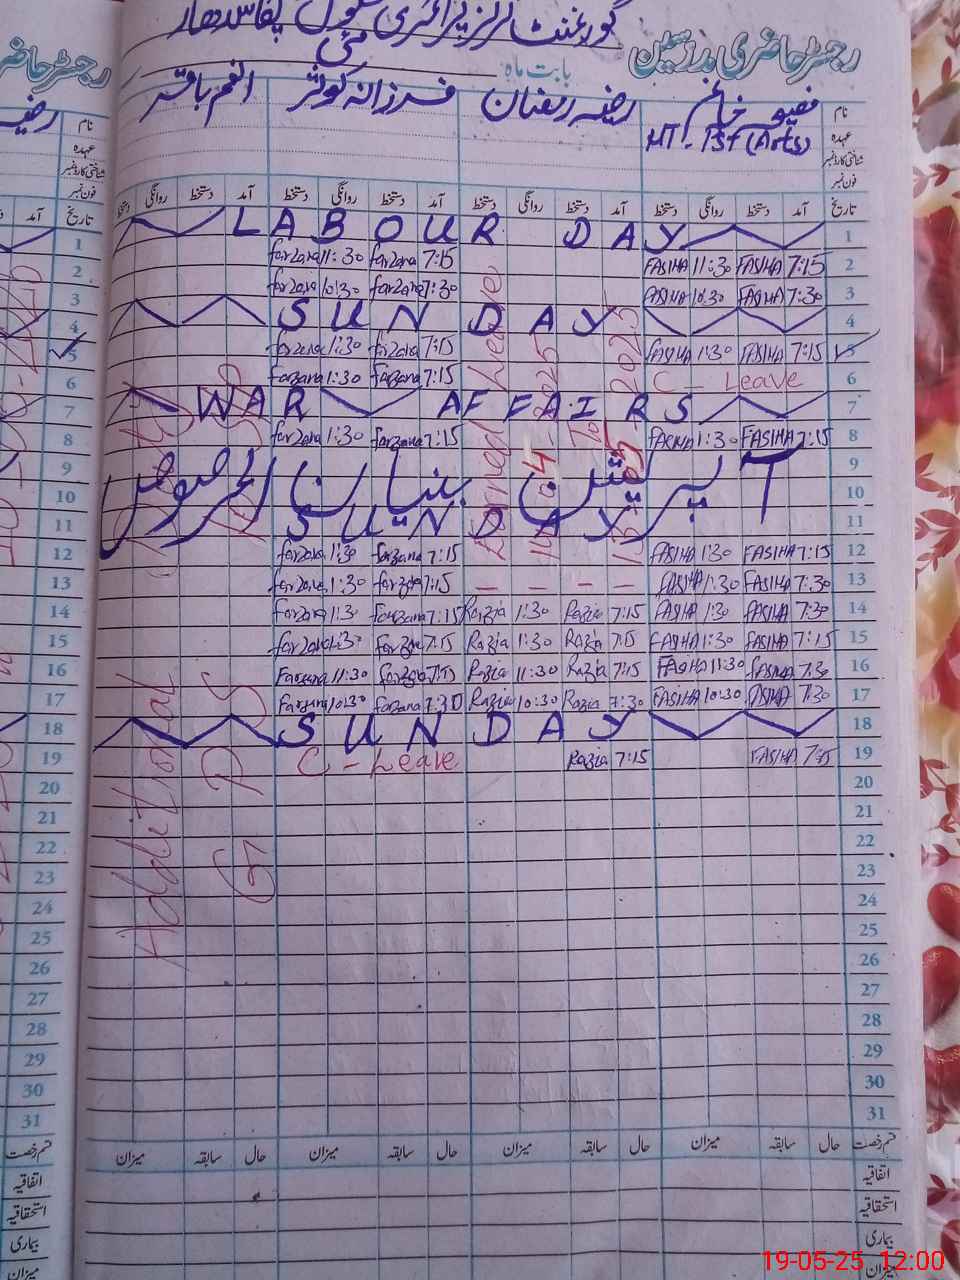 گورنمنٹ گرلز پرائمری سکول
رجسٹر حاضری مدرسین
بابت ماہ مئی
نام فصیحہ خانم رضیہ رمضان فرزانہ کوثر انعم باقر
عہدہ HT - 1ST (Arts)
شناختی کارڈ نمبر
فون نمبر
تاریخ آمد دستخط روانگی دستخط آمد دستخط روانگی دستخط آمد دستخط روانگی دستخط آمد دستخط روانگی دستخط
LABOUR DAY 1
Farzana 11:30 Farzana 7:15 FASIHA 11:30 FASIHA 7:15 2
Farzana 10:30 Farzana 7:30 FASIHA 10:30 FASIHA 7:30 3
SUNDAY 4
Farzana 1:30 Farzana 7:15 FASIHA 1:30 FASIHA 7:15 5
Farzana 1:30 Farzana 7:15 C - Leave 6
WAR AFFAIRS 7
Farzana 1:30 Farzana 7:15 FASIHA 1:30 FASIHA 7:15 8
9
آپریشن بنیان المرصوص
10
SUNDAY 11
Farzana 1:30 Farzana 7:15 FASIHA 1:30 FASIHA 7:15 12
Farzana 1:30 Farzana 7:15 FASIHA 1:30 FASIHA 7:30 13
Farzana 1:30 Farzana 7:15 Razia 1:30 Razia 7:15 FASIHA 1:30 FASIHA 7:30 14
Farzana 1:30 Farzana 7:15 Razia 1:30 Razia 7:15 FASIHA 1:30 FASIHA 7:15 15
Farzana 11:30 Farzana 7:15 Razia 11:30 Razia 7:15 FASIHA 11:30 FASIHA 7:30 16
Farzana 10:30 Farzana 7:30 Razia 10:30 Razia 7:30 FASIHA 10:30 FASIHA 7:30 17
SUNDAY 18
C - Leave Razia 7:15 FASIHA 7:15 19
20
21
22
23
24
25
26
27
28
29
30
31
Earned Leave
To
Additional
قسم رخصت حال سابقہ میزان حال سابقہ میزان حال سابقہ میزان حال سابقہ میزان
اتفاقیہ
استحقاقیہ
بیماری
میزان
19-05-25 12:00